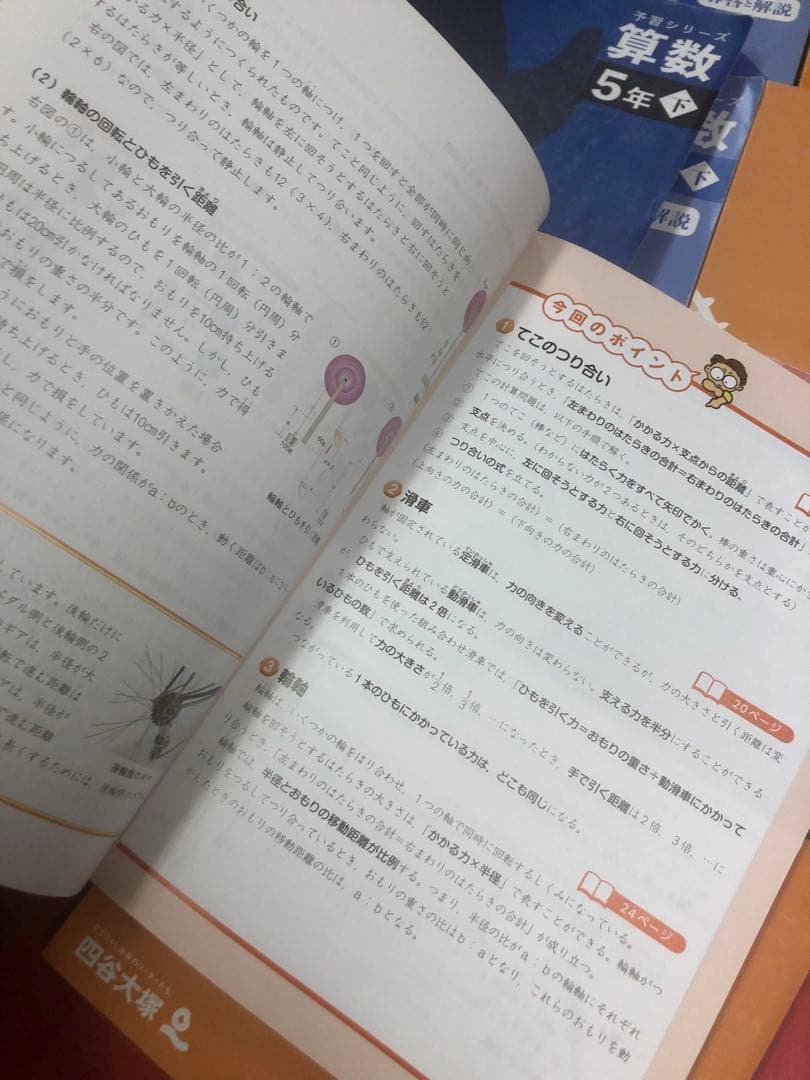 合い
くつかの輪を１つの軸につけ、１つを回すと全部が同時に同じ向
するようにつくられたものです。てこと同じように、回すはたらきを
る力×半径」として、輪軸を左に回そうとするはたらきと右に回そうと
するはたらきが等しいとき、輪軸は静止してつり合います。
右の図では、左まわりのはたらきも12（3×4）、右まわりのはたらきも12
（2×6）なので、つり合って静止します。
（2）輪軸の回転とひもを引く距離
右図の①は、小輪と大輪の半径の比が1：2の輪軸で
す。小輪につるしてあるおもりを輪軸の1回転（円周）分
ち上げるとき、大輪のひもを1回転（円周）分引きま
円周は半径に比例するので、おもりを10cm持ち上げる
もは20cm引かなければなりません。しかし、ひも
おもりの重さの半分です。このように、力で得
で損をします。
うにおもりと手の位置を置きかえた場合
持ち上げるとき、ひもは10cm引きます。
し、力で損をしています。
と同じように、力の関係がa：bのとき、動く距離はb
係になります。
①
②
100g
輪軸とひもを引く
しています。後輪だけに
ペダル側と後輪側の2
ギアは、半径が大
転で進む距離は
アは、半径が
で進む距離
長くするためには、後輪側の
後輪側のギア
予習シリーズ
算数
5年 下
解答と解説
数
下
解説
今回のポイント
1 てこのつり合い
てこを回そうとするはたらきは、「かかる力×支点からの距離」で表すことが
水平につり合うとき、「左まわりのはたらきの合計＝右まわりのはたらきの合計
てこの計算問題は、以下の手順で解く。
① 1つのてこ（棒など）にはたらく力をすべて矢印でかく。棒の重さは重心にか
② 支点を決める。（わからない力が2つあるときは、そのどちらかを支点とする）
③ 支点を中心に、左に回そうとする力と右に回そうとする力に分ける。
④ つり合いの式を立てる。
（左まわりのはたらきの合計）＝（右まわりのはたらきの合計）
（上向きの力の合計）＝（下向きの力の合計）
2 滑車
軸が固定されている定滑車は、力の向きを変えることができるが、力の大きさと引く距離は変
わらない。
ひもで支えられている動滑車は、力の向きは変わらない。支える力を半分にすることができる
が、ひもを引く距離は2倍になる。
1本のひもを使った組み合わせ滑車では、「ひもを引く力＝おもりの重さ÷動滑車にかかって
いるひもの数」で求められる。
滑車を利用して力の大きさが1/2倍、1/3倍、…になったとき、手で引く距離は2倍、3倍、…に
なる。
つながっている1本のひもにかかっている力は、どこも同じになる。
20ページ
3 輪軸
輪軸は、いくつかの輪をはり合わせ、1つの軸で同時に回転するしくみになっている。
輪軸を回そうとするはたらきの大きさは、「かかる力×半径」で表すことができる。輪軸がつ
り合うとき、「左まわりのはたらきの合計＝右まわりのはたらきの合計」が成り立つ。
輪軸では、半径とおもりの移動距離が比例する。つまり、半径の比がa：bの輪軸にそれぞれ
おもりをつるしてつり合っているとき、おもりの重さの比はb：aとなり、これらのおもりを動
かしたときのおもりの移動距離の比は、a：bとなる。
24ページ
四谷大塚